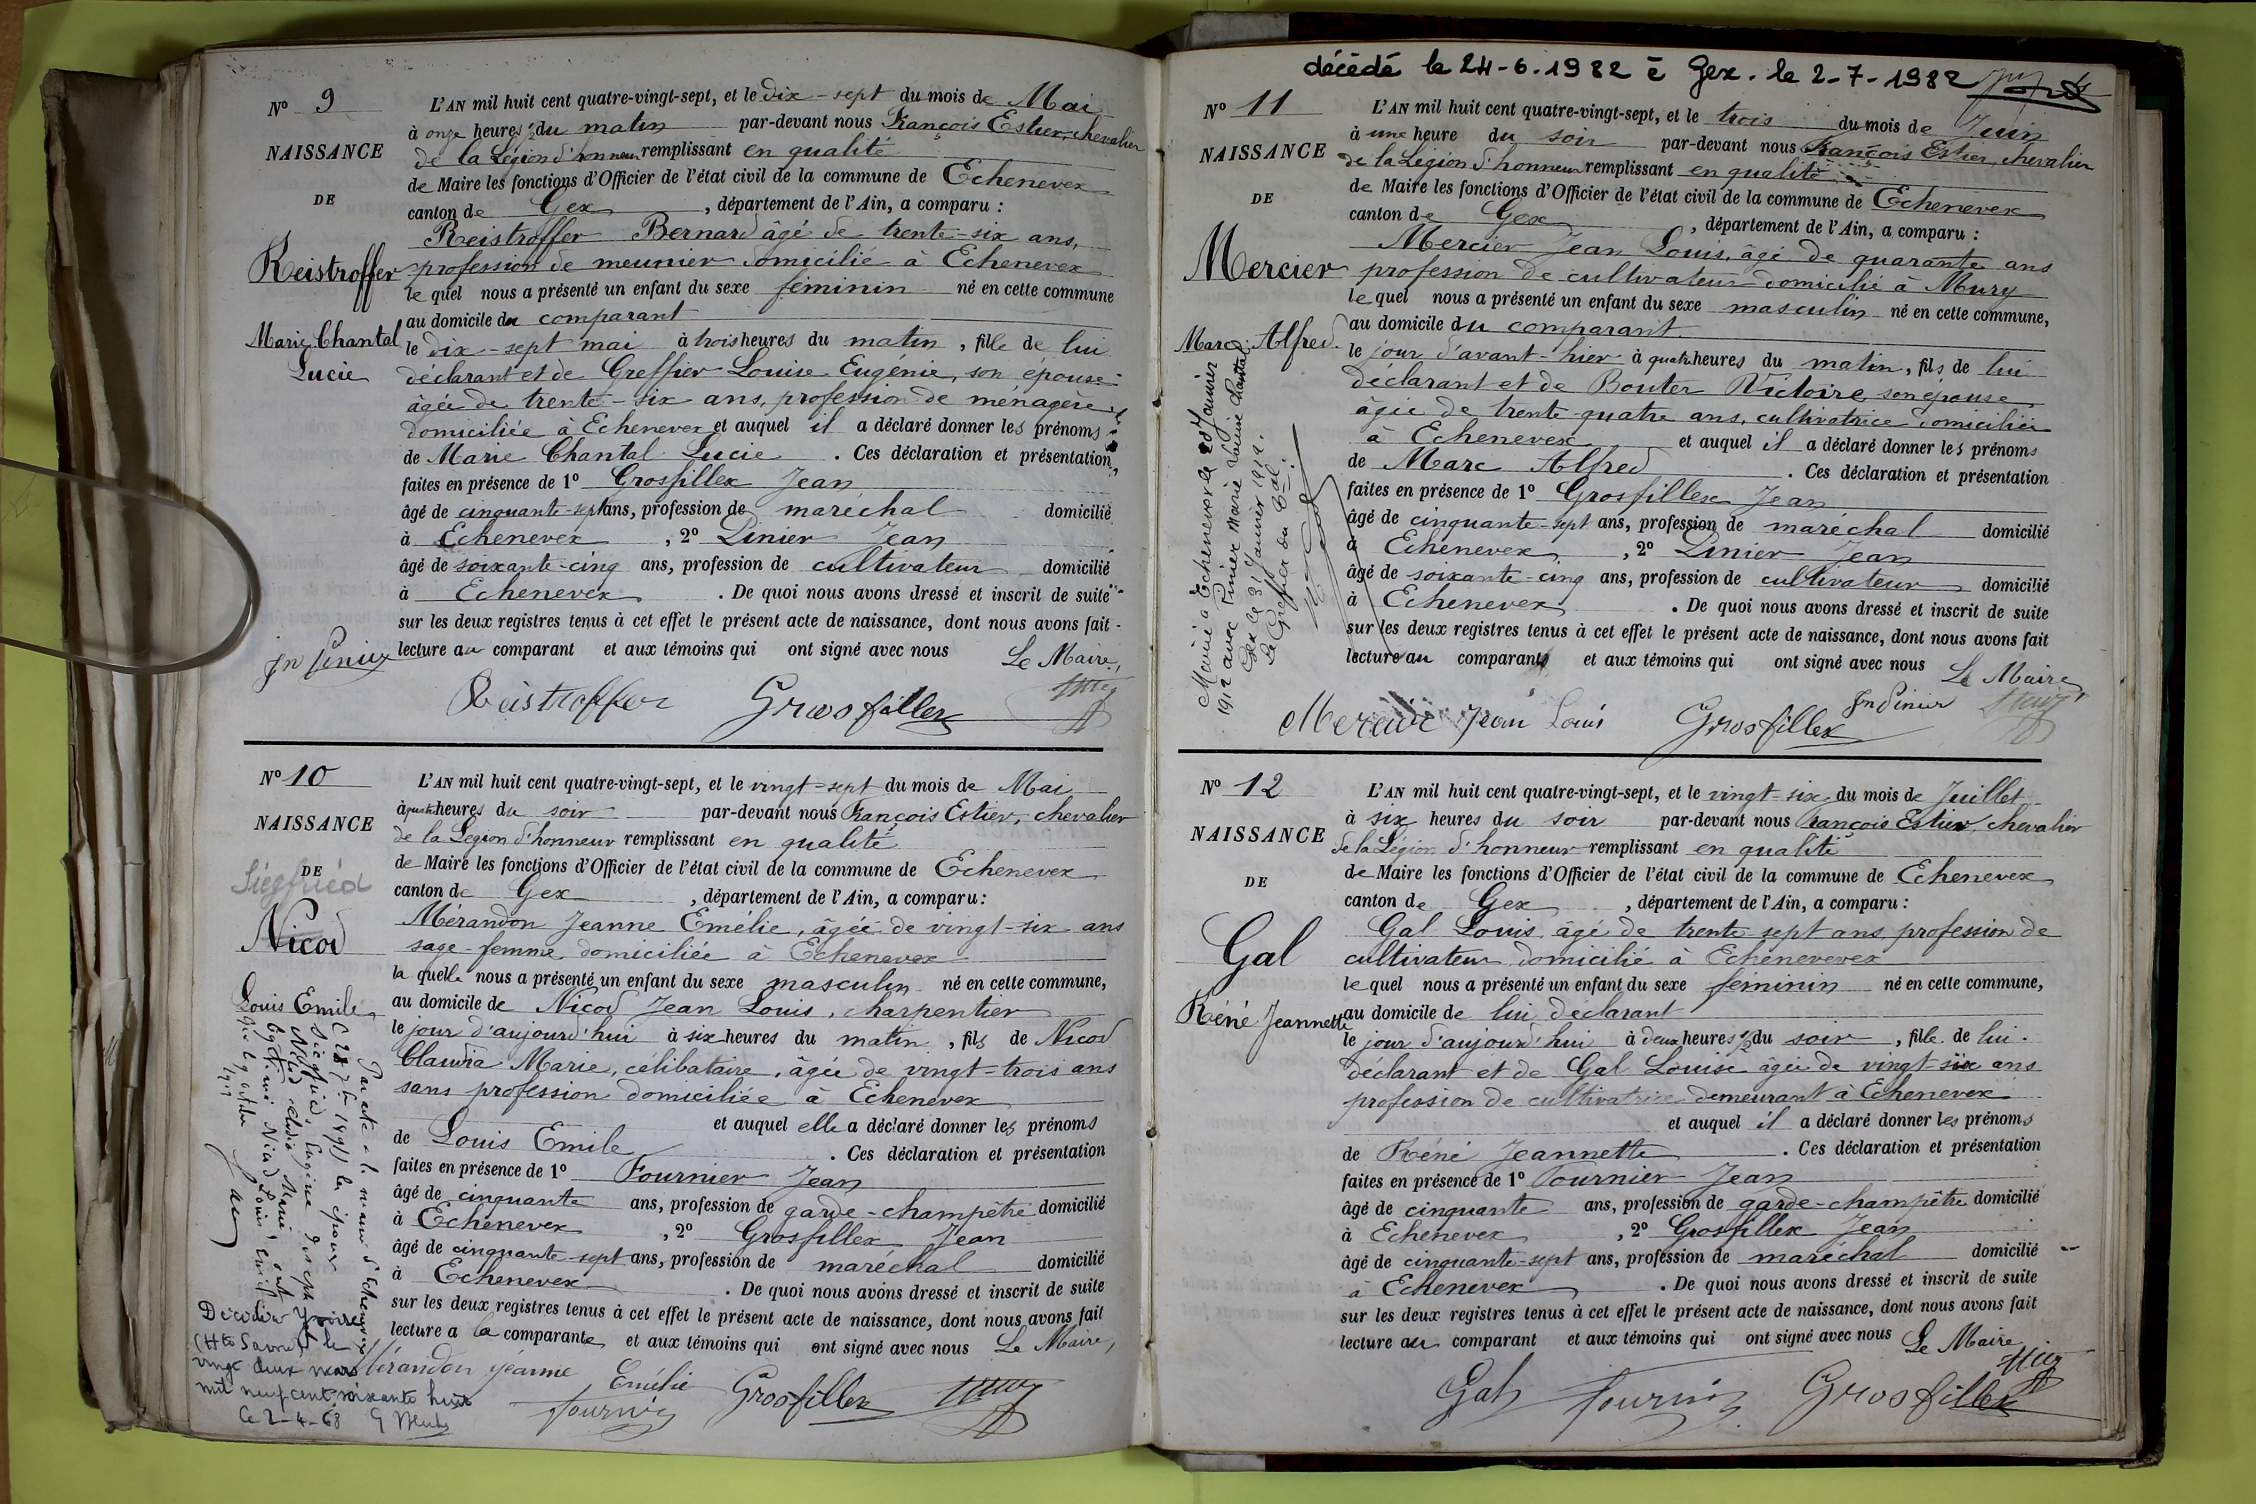 N° 9
NAISSANCE
DE
Reistroffer
Marie Chantal
Lucie
L'AN mil huit cent quatre-vingt-sept, et le dix-sept du mois de Mai
à onze heures ½ du matin par-devant nous François Estier, chevalier
de la Légion d'honneur remplissant en qualité
de Maire les fonctions d'Officier de l'état civil de la commune de Echenevex
canton de Gex, département de l'Ain, a comparu :
Reistroffer Bernard âgé de trente-six ans,
profession de meunier domicilié à Echenevex
le quel nous a présenté un enfant du sexe féminin né en cette commune
au domicile du comparant
le dix-sept mai à trois heures du matin, fille de lui
déclarant et de Greffier Louise Eugénie, son épouse
âgée de trente-six ans, profession de ménagère
domiciliée à Echenevex et auquel il a déclaré donner les prénoms
de Marie Chantal Lucie. Ces déclaration et présentation
faites en présence de 1° Grosfillex Jean
âgé de cinquante-sept ans, profession de maréchal domicilié
à Echenevex, 2° Pinier Jean
âgé de soixante-cinq ans, profession de cultivateur domicilié
à Echenevex. De quoi nous avons dressé et inscrit de suite
sur les deux registres tenus à cet effet le présent acte de naissance, dont nous avons fait
lecture au comparant et aux témoins qui ont signé avec nous Le Maire,
Jn Pinier
Reistroffer Grosfillex
N° 10
NAISSANCE
DE
Siegfried
Nicod
Louis Emile
L'AN mil huit cent quatre-vingt-sept, et le vingt-sept du mois de Mai
à quatre heures du soir par-devant nous François Estier, chevalier
de la Légion d'honneur remplissant en qualité
de Maire les fonctions d'Officier de l'état civil de la commune de Echenevex
canton de Gex, département de l'Ain, a comparu :
Mérandon Jeanne Emélie, âgée de vingt-six ans
sage-femme domiciliée à Echenevex
la quelle nous a présenté un enfant du sexe masculin né en cette commune,
au domicile de Nicod Jean Louis, charpentier
le jour d'aujourd'hui à six heures du matin, fils de Nicod
Claudia Marie, célibataire, âgée de vingt-trois ans
sans profession domiciliée à Echenevex
et auquel elle a déclaré donner les prénoms
de Louis Emile. Ces déclaration et présentation
faites en présence de 1° Fournier Jean
âgé de cinquante ans, profession de garde-champêtre domicilié
à Echenevex, 2° Grosfillex Jean
âgé de cinquante-sept ans, profession de maréchal domicilié
à Echenevex. De quoi nous avons dressé et inscrit de suite
sur les deux registres tenus à cet effet le présent acte de naissance, dont nous avons fait
lecture a la comparante et aux témoins qui ont signé avec nous Le Maire,
Mérandon jeanne Emélie Grosfillex
Fournier
Siegfried, Eugène Joseph
Nicod Claudia Marie ont
légitimé Nicod Louis Emile
(Hte Savoie) le
vingt deux mars
mil neuf cent soixante huit
Le 2-4-68
décédé le 24-6-1982 à Gex. le 2-7-1982
N° 11
NAISSANCE
DE
Mercier
Marc Alfred
Marié à Echenevex le 20 Janvier
1912 avec Pinier Marie Louise Chantal
Gex le 31 Janvier 1912.
Le Greffier du Tbal.
L'AN mil huit cent quatre-vingt-sept, et le trois du mois de Juin
à une heure du soir par-devant nous François Estier, chevalier
de la Légion d'honneur remplissant en qualité
de Maire les fonctions d'Officier de l'état civil de la commune de Echenevex
canton de Gex, département de l'Ain, a comparu :
Mercier Jean Louis, âgé de quarante ans
profession de cultivateur domicilié à Mury
le quel nous a présenté un enfant du sexe masculin né en cette commune,
au domicile du comparant
le jour d'avant-hier à quatre heures du matin, fils de lui
déclarant et de Bouter Victoire, son épouse
âgée de trente-quatre ans, cultivatrice domiciliée
à Echenevex et auquel il a déclaré donner les prénoms
de Marc Alfred. Ces déclaration et présentation
faites en présence de 1° Grosfillex Jean
âgé de cinquante-sept ans, profession de maréchal domicilié
à Echenevex, 2° Pinier Jean
âgé de soixante-cinq ans, profession de cultivateur domicilié
à Echenevex. De quoi nous avons dressé et inscrit de suite
sur les deux registres tenus à cet effet le présent acte de naissance, dont nous avons fait
lecture au comparant et aux témoins qui ont signé avec nous Le Maire
Mercier Jean Louis Grosfillex Jn Pinier
N° 12
NAISSANCE
DE
Gal
Réné Jeannette
L'AN mil huit cent quatre-vingt-sept, et le vingt-six du mois de Juillet
à six heures du soir par-devant nous François Estier, chevalier
de la Légion d'honneur remplissant en qualité
de Maire les fonctions d'Officier de l'état civil de la commune de Echenevex
canton de Gex, département de l'Ain, a comparu :
Gal Louis, âgé de trente-sept ans, profession de
cultivateur domicilié à Echenevevex
le quel nous a présenté un enfant du sexe féminin né en cette commune,
au domicile de lui déclarant
le jour d'aujourd'hui à deux heures ½ du soir, fille de lui
déclarant et de Gal Louise âgée de vingt-six ans
profession de cultivatrice demeurant à Echenevex
et auquel il a déclaré donner les prénoms
de Réné Jeannette. Ces déclaration et présentation
faites en présence de 1° Fournier Jean
âgé de cinquante ans, profession de garde-champêtre domicilié
à Echenevex, 2° Grosfillex Jean
âgé de cinquante-sept ans, profession de maréchal domicilié
à Echenevex. De quoi nous avons dressé et inscrit de suite
sur les deux registres tenus à cet effet le présent acte de naissance, dont nous avons fait
lecture au comparant et aux témoins qui ont signé avec nous Le Maire
Gal Fournier Grosfillex